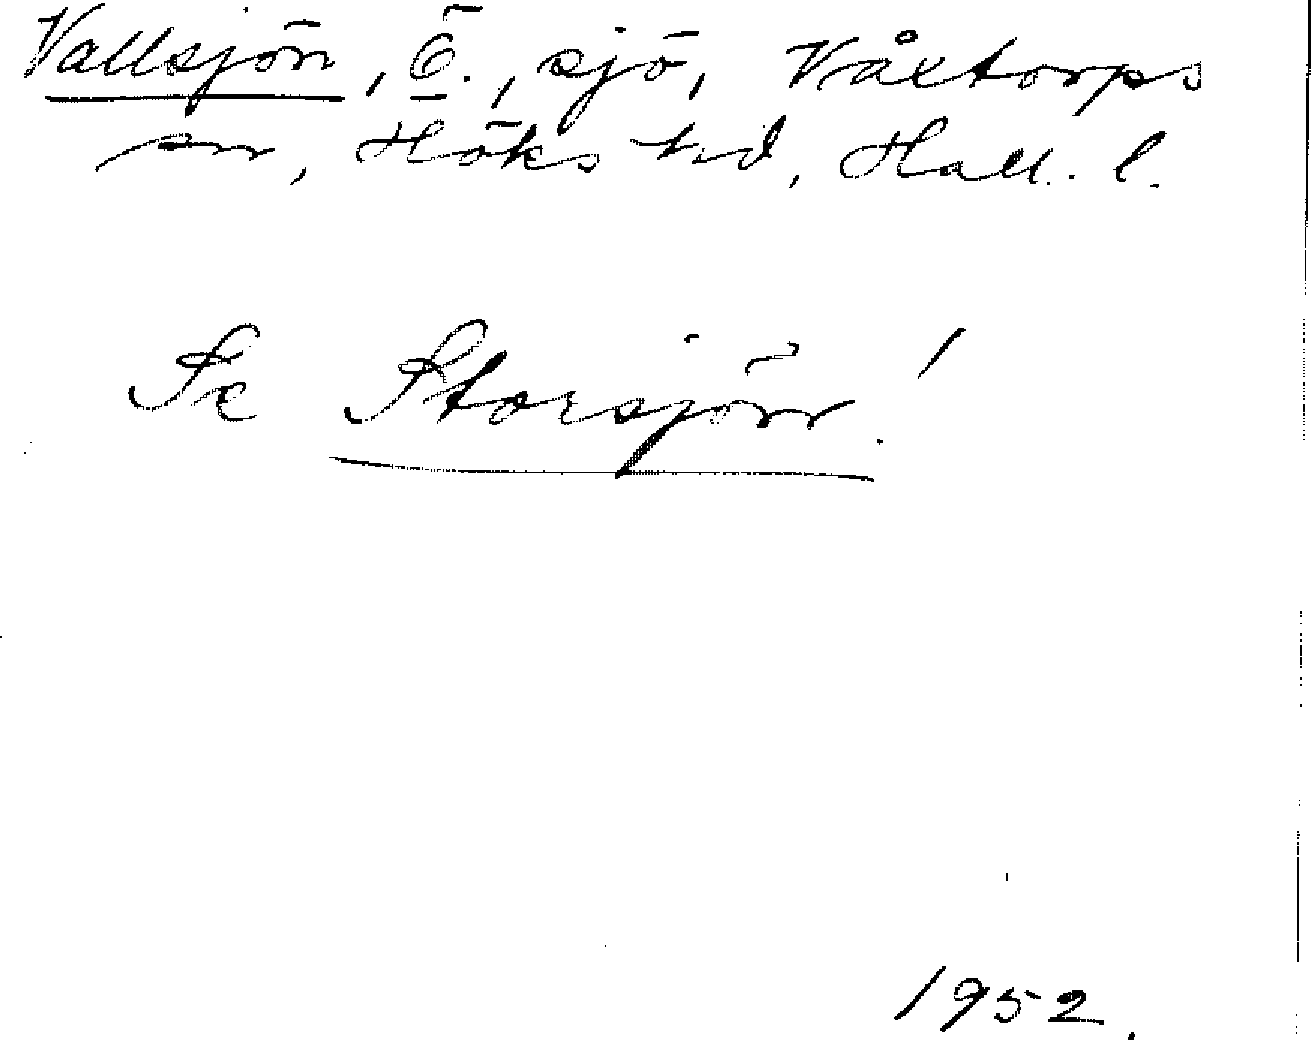 Vallsjön, Ö., sjö, Våxtorps
sn, Höks hd, Hall. l.
Se Storsjön!
1952.